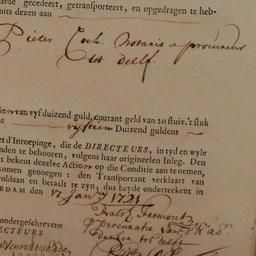 arde gecedeert, getransporteert, en opgedragen te heb-
mits dezen aan
Pieter Cock. Notaris & procureur
tot delff.
Actien van vyf duizend guld. courant geld van 20 stuiv. 't stuk
vyftien Duizend guldens
et d'Inroepinge, die de DIRECTEURS, in tyd en wyle
nden te behooren, volgens haar origineelen Inleg. Den
t bekent dezelve Actien op die Conditie aan te nemen,
komen genoegen: den Transportant verklaart van
voldaan en betaalt te zyn, dus beyde onderteekent in
RDAM den 17 Jany 1721
procuratie van
tot delft
ondergeschrevene
ECTEURS